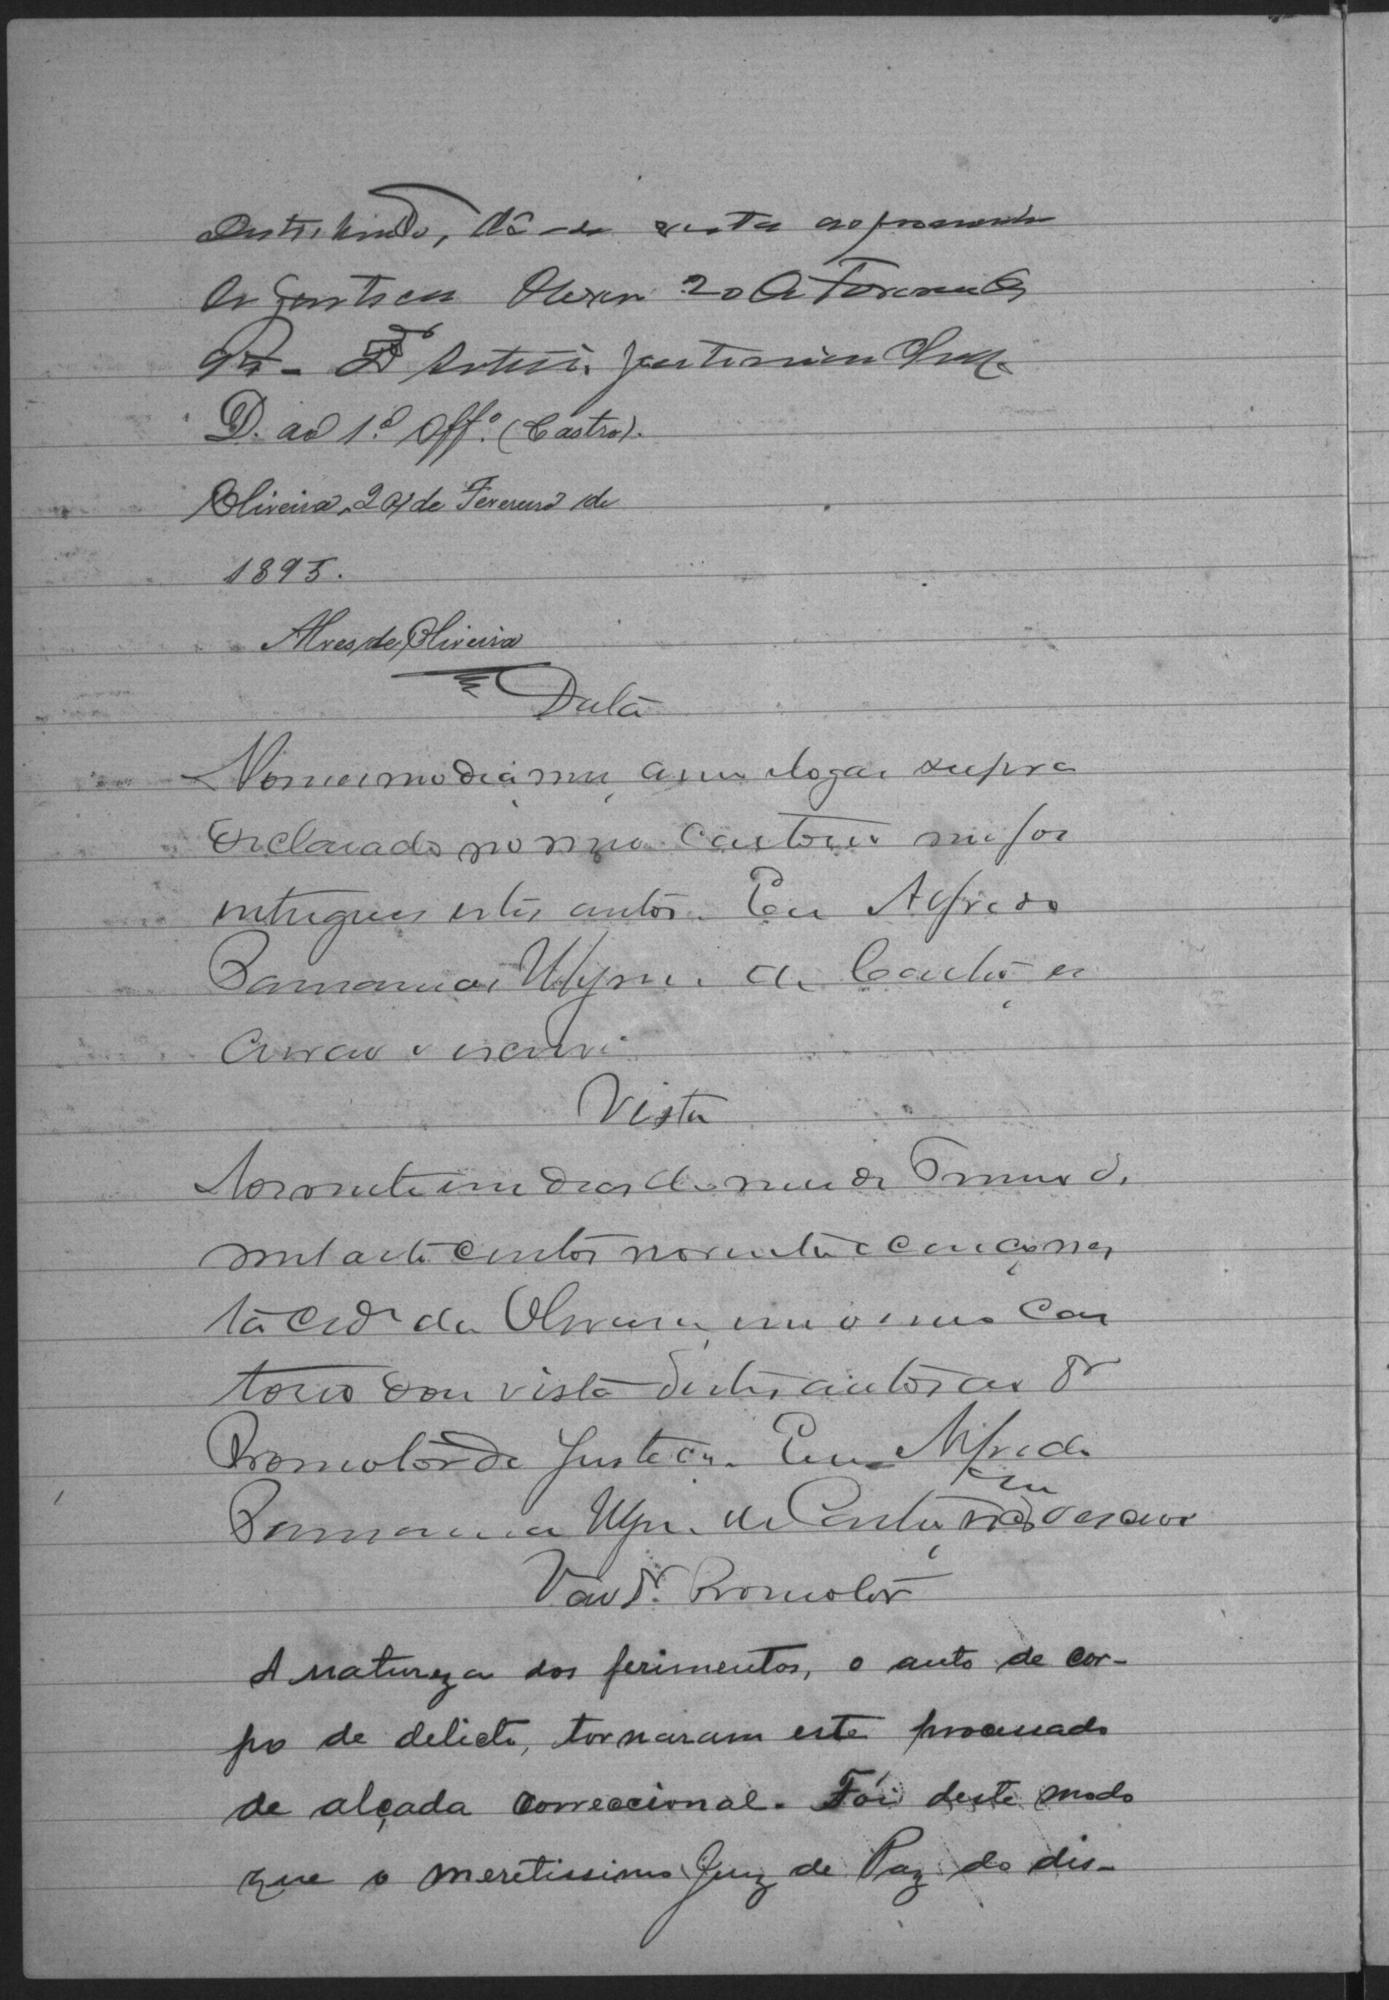 Distribuido, dê-se vista ao promotor
de Justiça Oliveira 20 de Fevereiro de
95 –
D. ao 1.º Off.º (Castro).
Oliveira, 20 de Fevereiro de
1895.
Alves de Oliveira
Data
No mesmo dia mez anno e logar supra
declarado no meu cartorio me foi
entregues estes autos. Eu Alfredo
de Castro es
crivão o escrevi
Vista
Aos vinte um dias do mez de
mil oito centos noventa e cinco nes
ta cid.e de Oliveira, em o meu car
torio dou vista destes autos ao Dr
Promotor de Justiça. Eu Alfredo
de Castro escrivão o escrevi
V ao Dr. Promotor
A natureza dos ferimentos, o auto de cor-
po de delicto, tornaram este processado
de alçada correccional. Foi deste modo
que o meretissimo Juiz de Paz do dis-